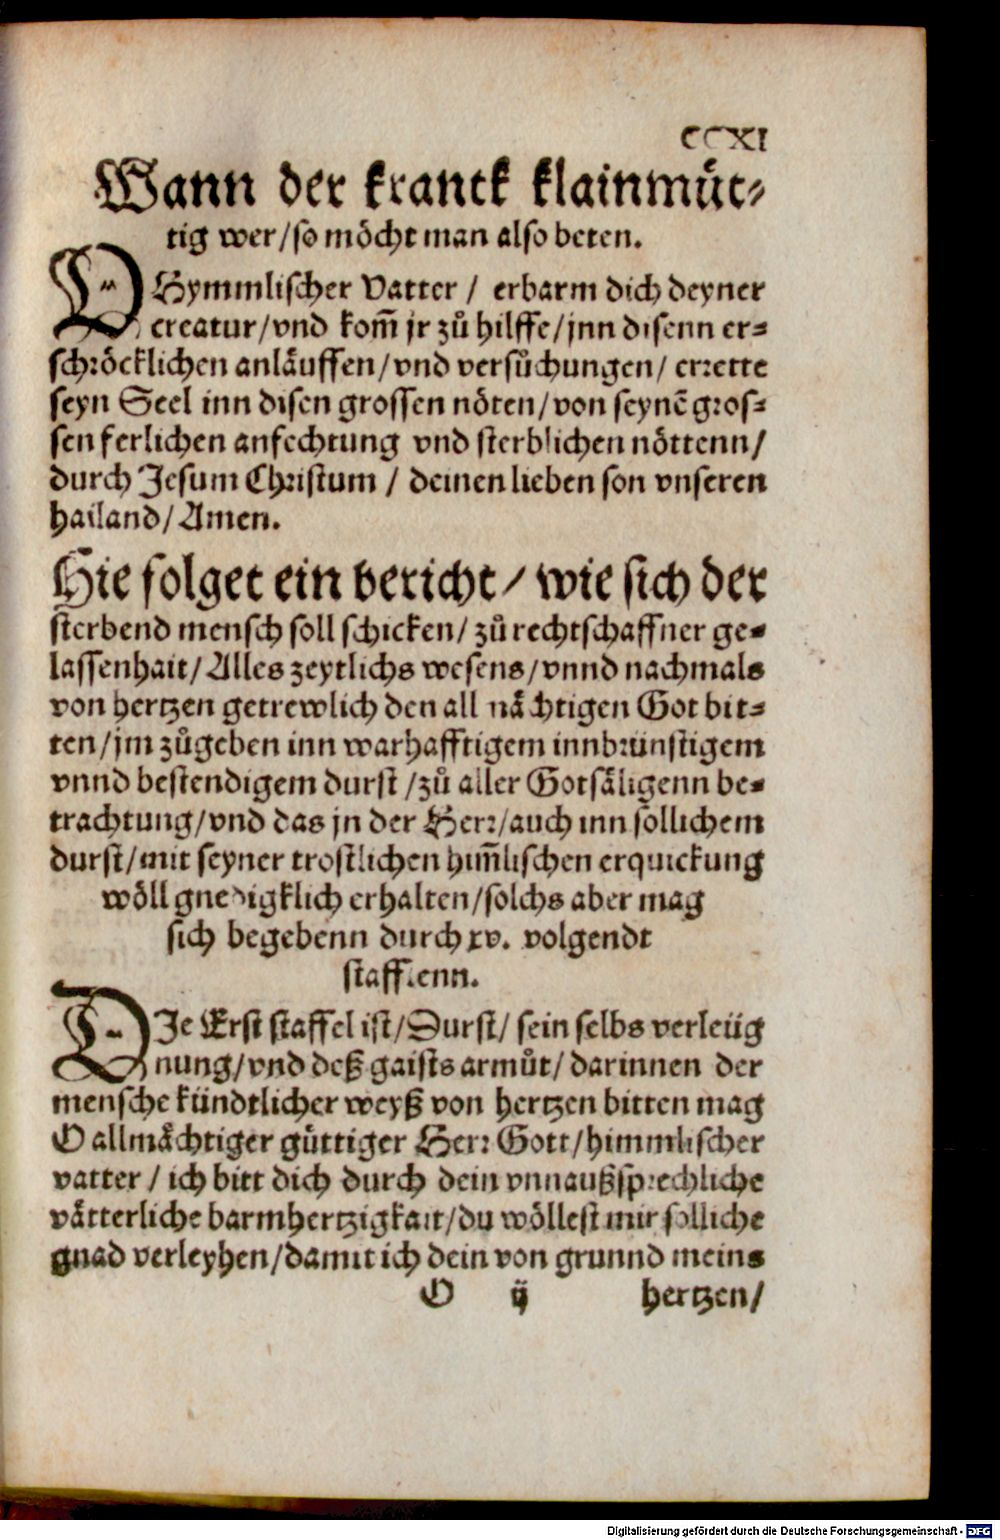 CCXI
Wann der kranck klainmuͤt⸗
tig wer/so moͤcht man also beten.
O Hymmlischer Vatter / erbarm dich deyner
creatur/vnd kom̃ jr zuͦ hilffe/jnn disenn er⸗
schroͤcklichen anlaͤuffen/vnd versuͦchungen/ errette
seyn Seel inn disen grossen noͤten/von seynẽ gros⸗
sen ferlichen anfechtung vnd sterblichen noͤttenn/
durch Jesum Christum / deinen lieben son vnseren
hailand/Amen.
Hie folget ein bericht/ wie sich der
sterbend mensch soll schicken/ zuͦ rechtschaffner ge⸗
lassenhait/Alles zeytlichs wesens/vnnd nachmals
von hertzen getrewlich den allmaͤchtigen Got bit⸗
ten/jm zuͦgeben inn warhafftigem innbrünstigem
vnnd bestendigem durst /zuͦ aller Gotsaͤligenn be⸗
trachtung/vnd das jn der Herr/auch inn sollichem
durst/mit seyner trostlichen him̃lischen erquickung
woͤll gnedigklich erhalten/solchs aber mag
sich begebenn durch xv. volgendt
stafflenn.
DJe Erst staffel ist/Durst/ sein selbs verleüg
nung/vnd deß gaists armuͦt/ darinnen der
mensche kündtlicher weyß von hertzen bitten mag
O allmaͤchtiger guͤttiger Herr Gott/himmlischer
vatter / ich bitt dich durch dein vnnaußsprechliche
vaͤtterliche barmhertzigkait/du woͤllest mir solliche
gnad verleyhen/damit ich dein von grunnd meins
O ij hertzen/
Digitalisierung gefördert durch die Deutsche Forschungsgemeinschaft - DFG